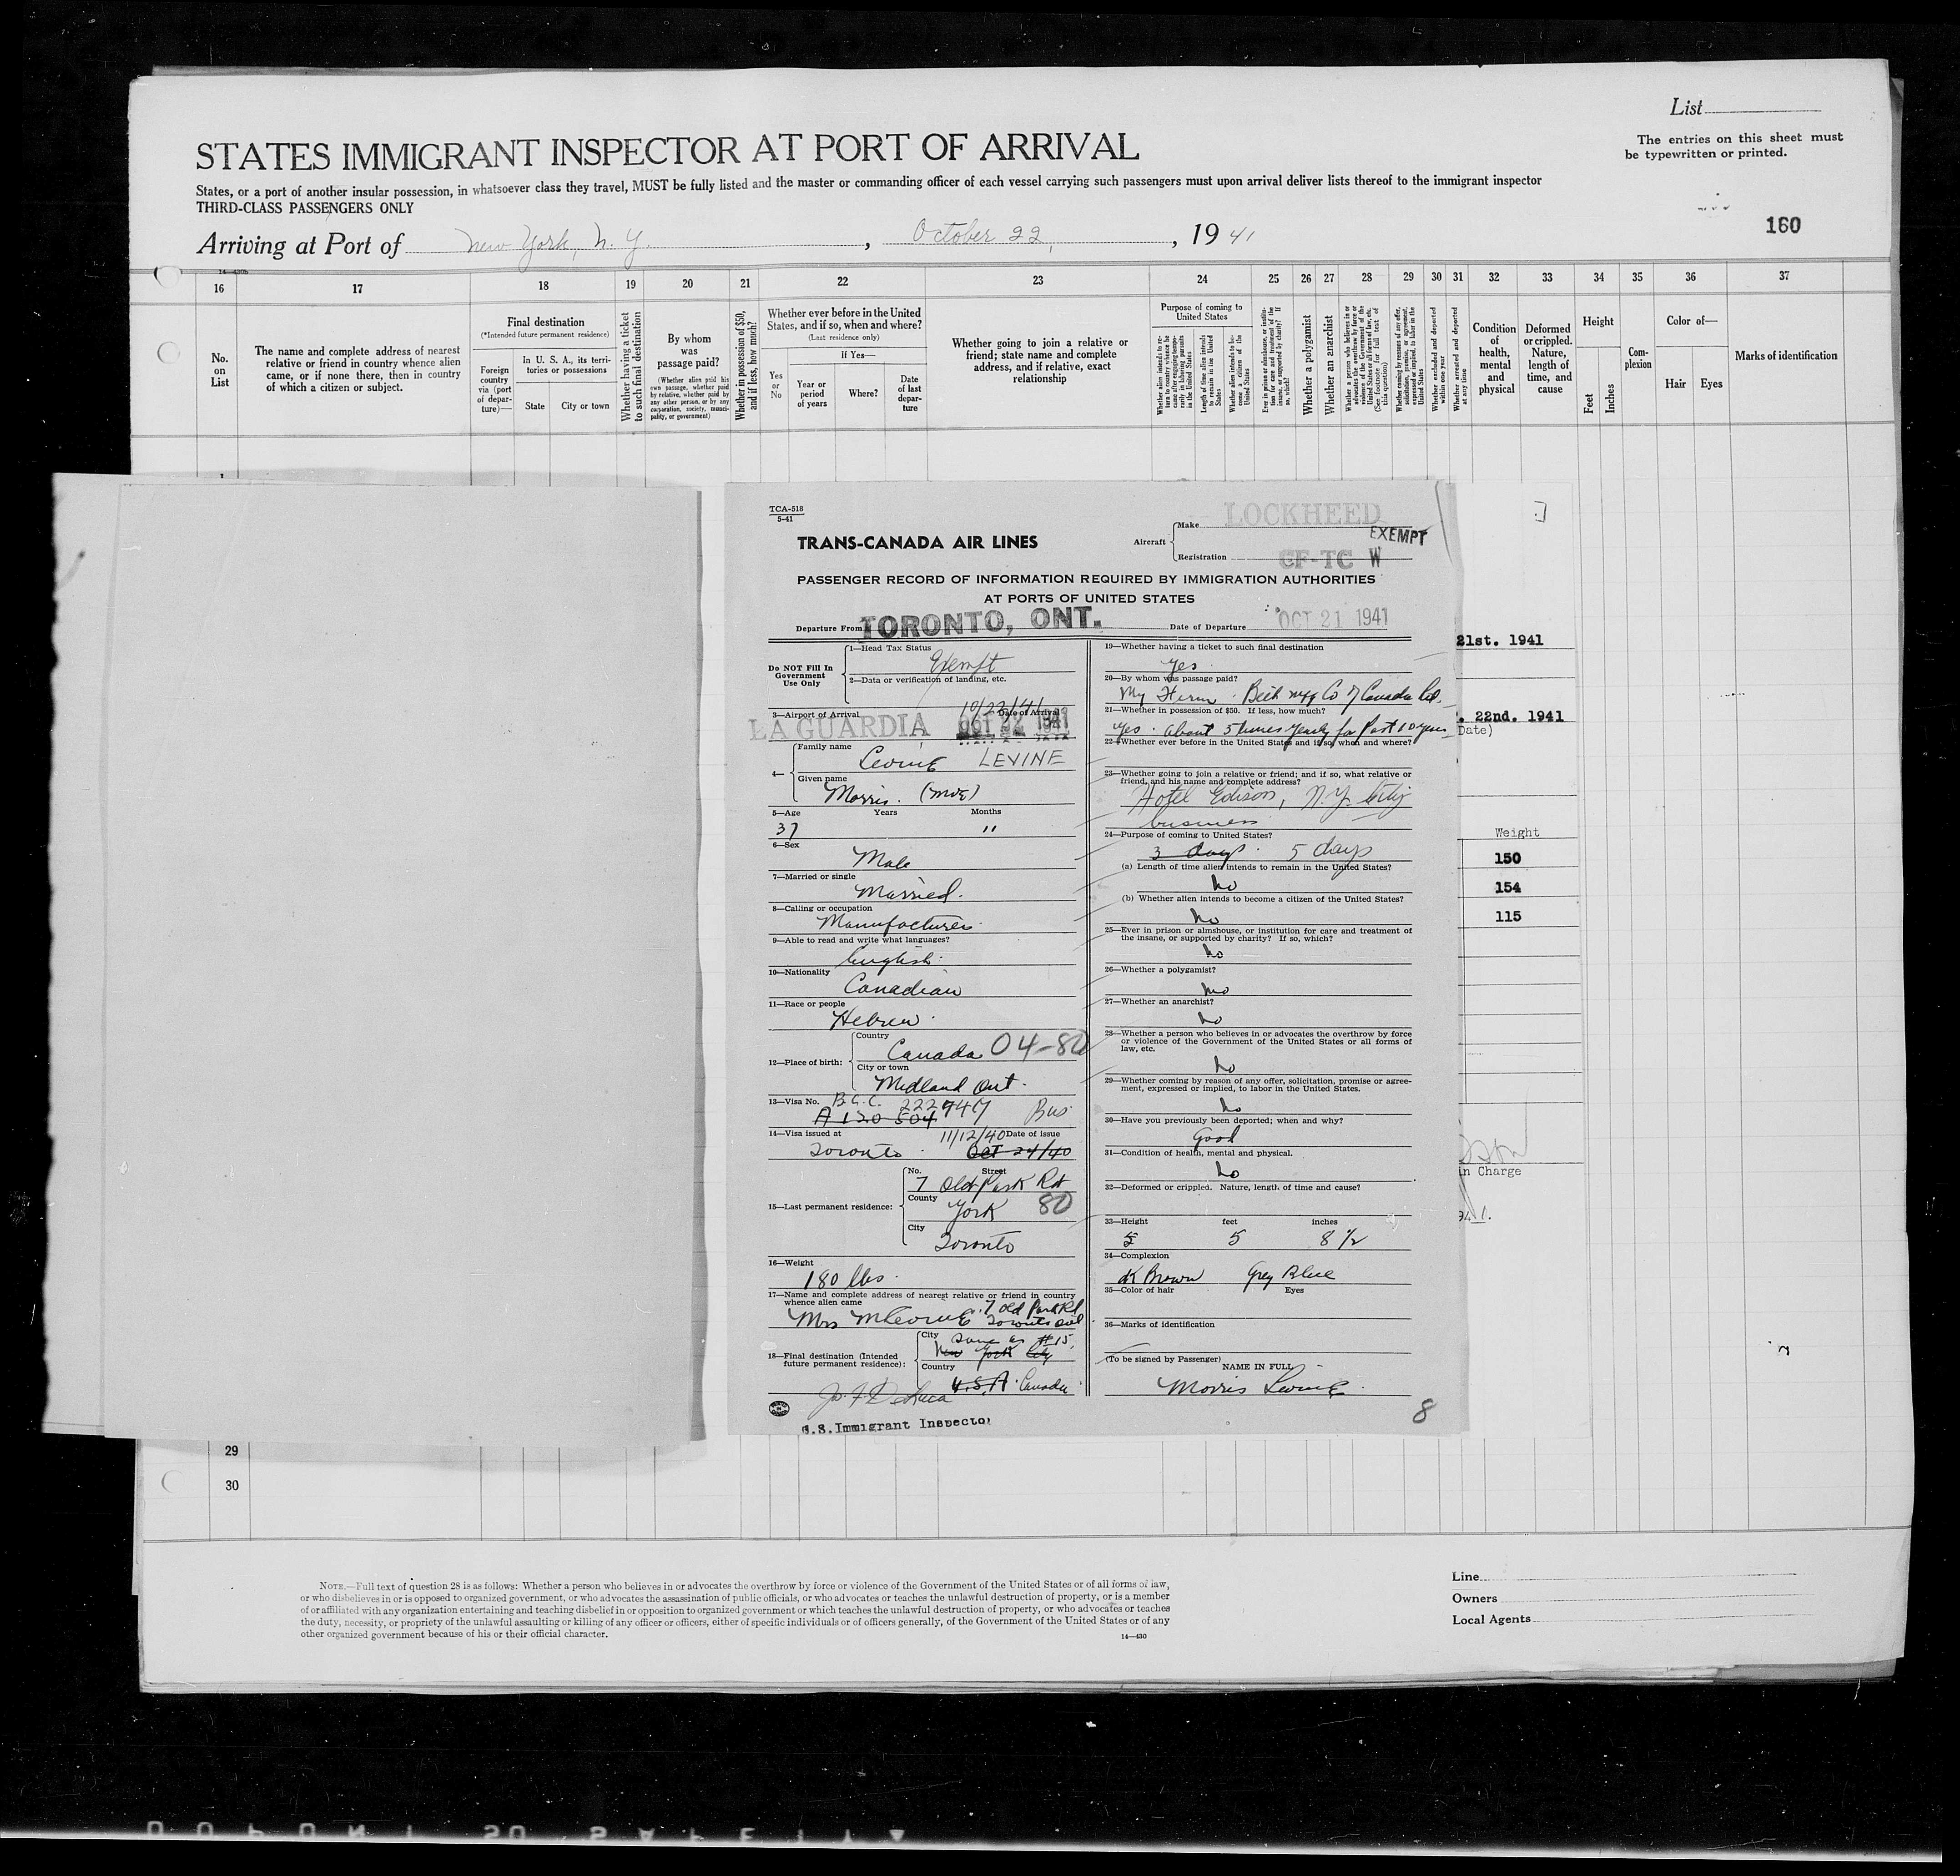 List
The entries on this sheet must
be typewritten or printed.
STATES IMMIGRANT INSPECTOR AT PORT OF ARRIVAL
States, or a port of another insular possession, in whatsoever class they travel, MUST be fully listed and the master or commanding officer of each vessel carrying such passengers must upon arrival deliver lists thereof to the immigrant inspector
THIRD-CLASS PASSENGERS ONLY
160
Arriving at Port of New York, N. Y. , October 22, , 19 41
16 17 18 19 20 21 22 23 24 25 26 27 28 29 30 31 32 33 34 35 36 37
No. on List
The name and complete address of nearest relative or friend in country whence alien came, or if none there, then in country of which a citizen or subject.
Final destination
(*Intended future permanent residence)
Foreign country via (port of departure)—
In U. S. A., its territories or possessions
State
City or town
Whether having a ticket to such final destination
By whom was passage paid?
(Whether alien paid his own passage, whether paid by relative, whether paid by any other person, or by any corporation, society, municipality, or government)
Whether in possession of $50, and if less, how much?
Whether ever before in the United States, and if so, when and where?
(Last residence only)
If Yes—
Yes or No
Year or period of years
Where?
Date of last departure
Whether going to join a relative or friend; state name and complete address, and if relative, exact relationship
Purpose of coming to United States
Length of time alien intends to remain in the United States
Whether alien intends to become a citizen of the United States
Whether a polygamist
Whether an anarchist
Whether excluded and deported within one year
Whether arrested and deported at any time
Condition of health, mental and physical
Deformed or crippled. Nature, length of time, and cause
Height
Feet
Inches
Complexion
Color of—
Hair
Eyes
Marks of identification
TCA-518
5-41
TRANS-CANADA AIR LINES
Aircraft
Make LOCKHEED
EXEMPT
Registration CF-TC W
PASSENGER RECORD OF INFORMATION REQUIRED BY IMMIGRATION AUTHORITIES
AT PORTS OF UNITED STATES
Departure From TORONTO, ONT.
Date of Departure OCT 21 1941
Do NOT Fill In
Government
Use Only
1—Head Tax Status
Exempt
2—Data or verification of landing, etc.
10/22/41
3—Airport of Arrival
Date of Arrival
LA GUARDIA OCT 22 1941
4—
Family name
Levine LEVINE
Given name
Morris. (MOE)
5—Age Years Months
37 "
6—Sex
Male
7—Married or single
Married.
8—Calling or occupation
Manufacturer
9—Able to read and write what languages?
English.
10—Nationality
Canadian
11—Race or people
Hebrew.
12—Place of birth:
Country
Canada 04-80
City or town
Midland Ont.
13—Visa No. B.C.C. 222947 Bus
A 120 504
14—Visa issued at 11/12/40 Date of issue
Toronto. Oct 24/40
15—Last permanent residence:
No. Street
7 Old Park Rd
County
York 80
City
Toronto
16—Weight
180 lbs.
17—Name and complete address of nearest relative or friend in country
whence alien came
Mrs M Levine 7 Old Park Rd
Toronto Ont
18—Final destination (Intended
future permanent residence):
City Same as #15.
New York City
Country
U.S.A. Canada
U.S. Immigrant Inspector
19—Whether having a ticket to such final destination
Yes
20—By whom was passage paid?
My Firm. Mfg Co of Canada Ltd.
21—Whether in possession of $50. If less, how much?
Yes. About 5 times yearly for Past 10 years
22—Whether ever before in the United States and if so, when and where?
23—Whether going to join a relative or friend; and if so, what relative or
friend, and his name and complete address?
Hotel Edison, N.Y. City
business
24—Purpose of coming to United States?
3 days. 5 days
(a) Length of time alien intends to remain in the United States?
No
(b) Whether alien intends to become a citizen of the United States?
No
25—Ever in prison or almshouse, or institution for care and treatment of
the insane, or supported by charity? If so, which?
No
26—Whether a polygamist?
No
27—Whether an anarchist?
No
28—Whether a person who believes in or advocates the overthrow by force
or violence of the Government of the United States or all forms of
law, etc.
No
29—Whether coming by reason of any offer, solicitation, promise or agree-
ment, expressed or implied, to labor in the United States.
No
30—Have you previously been deported; when and why?
Good
31—Condition of health, mental and physical.
No
32—Deformed or crippled. Nature, length of time and cause?
33—Height feet inches
5 5 8 1/2
34—Complexion
dk Brown Grey Blue
35—Color of hair Eyes
36—Marks of identification
(To be signed by Passenger)
NAME IN FULL
Morris Levine.
8
21st. 1941
22nd. 1941
Date)
Weight
150
154
115
in Charge
29
30
NOTE.—Full text of question 28 is as follows: Whether a person who believes in or advocates the overthrow by force or violence of the Government of the United States or of all forms of law,
or who disbelieves in or is opposed to organized government, or who advocates the assassination of public officials, or who advocates or teaches the unlawful destruction of property, or is a member
of or affiliated with any organization entertaining and teaching disbelief in or opposition to organized government or which teaches the unlawful destruction of property, or who advocates or teaches
the duty, necessity, or propriety of the unlawful assaulting or killing of any officer or officers, either of specific individuals or of officers generally, of the Government of the United States or of any
other organized government because of his or their official character.
14—430
Line
Owners
Local Agents